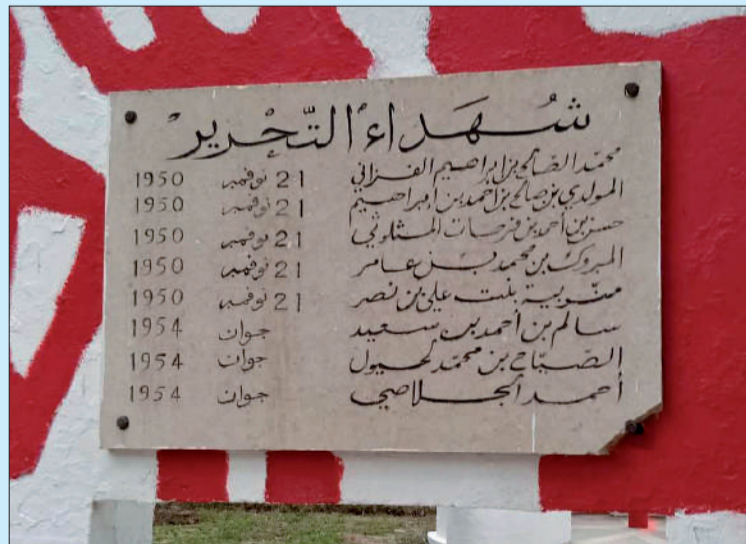 شُهَداءُ التّحْرير
محمّد الصّالح بن ابراهيم الفزاني 21 نوفمبر 1950
المولدي بن صالح بن احمد بن ابراهيم 21 نوفمبر 1950
حسن بن أحمد بن فرحات المثلوثي 21 نوفمبر 1950
المبروك بن محمد بن عامر 21 نوفمبر 1950
منّوبية بنت علي بن نصر 21 نوفمبر 1950
سالم بن أحمد بن سعيد جوان 1954
الصبّاحي بن محمّد لحيول جوان 1954
أحمد الجلاصي جوان 1954